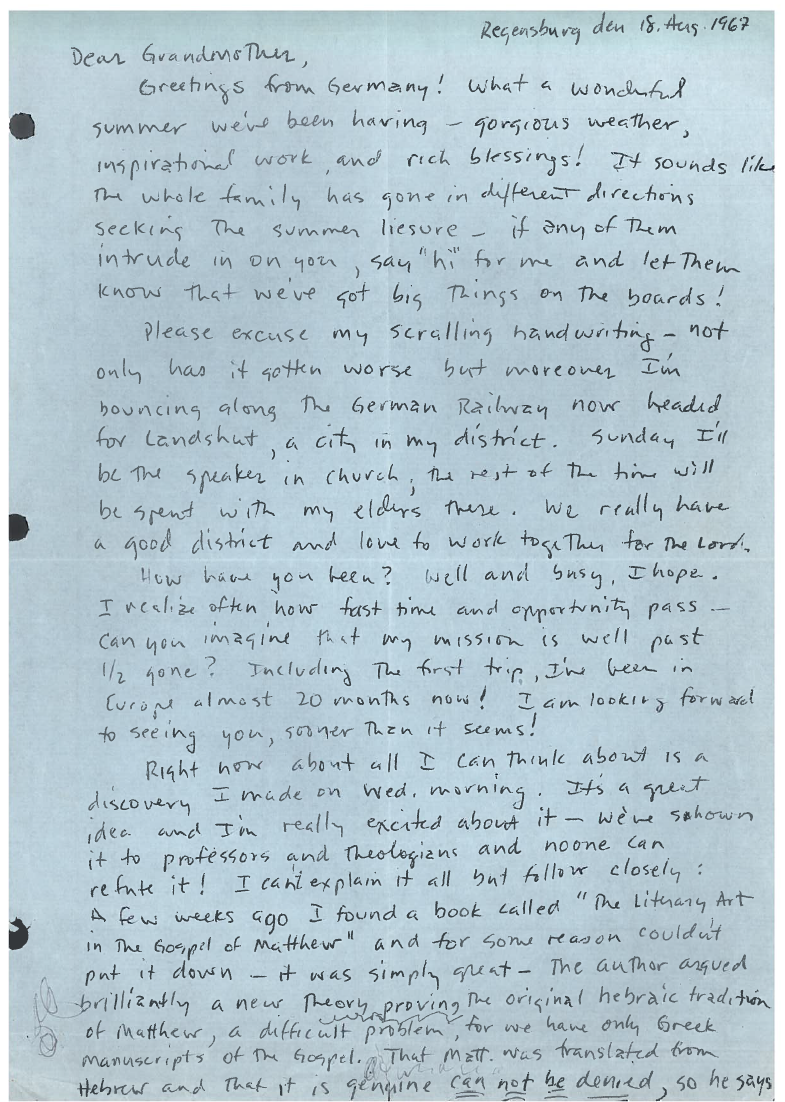 Regensburg den 18. Aug. 1967
Dear Grandmother,
Greetings from Germany! What a wonderful
summer we've been having – gorgious weather,
inspirational work, and rich blessings! It sounds like
the whole family has gone in different directions
seeking the summer liesure – if any of them
intrude in on you, say "hi" for me and let them
know that we've got big things on the boards!
Please excuse my scralling handwriting – not
only has it gotten worse but moreover I'm
bouncing along the German Railway now headed
for Landshut, a city in my district. Sunday I'll
be the speaker in church; the rest of the time will
be spent with my elders there. We really have
a good district and love to work together for the Lord.
How have you been? Well and busy, I hope.
I realize often how fast time and opportunity pass –
Can you imagine that my mission is well past
1/2 gone? Including the first trip, I've been in
Europe almost 20 months now! I am looking forward
to seeing you, sooner than it seems!
Right now about all I can think about is a
discovery I made on Wed. morning. It's a great
idea and I'm really excited about it – we've shown
it to professors and theologians and noone can
refute it! I can't explain it all but follow closely:
A few weeks ago I found a book called "The Literary Art
in the Gospel of Matthew" and for some reason couldn't
put it down – it was simply great – The author argued
brilliantly a new theory proving the original hebraic tradition
of Matthew, a difficult problem, for we have only Greek
manuscripts of the Gospel. That Matt. was translated from
Hebrew and that it is genuine can not be denied, so he says